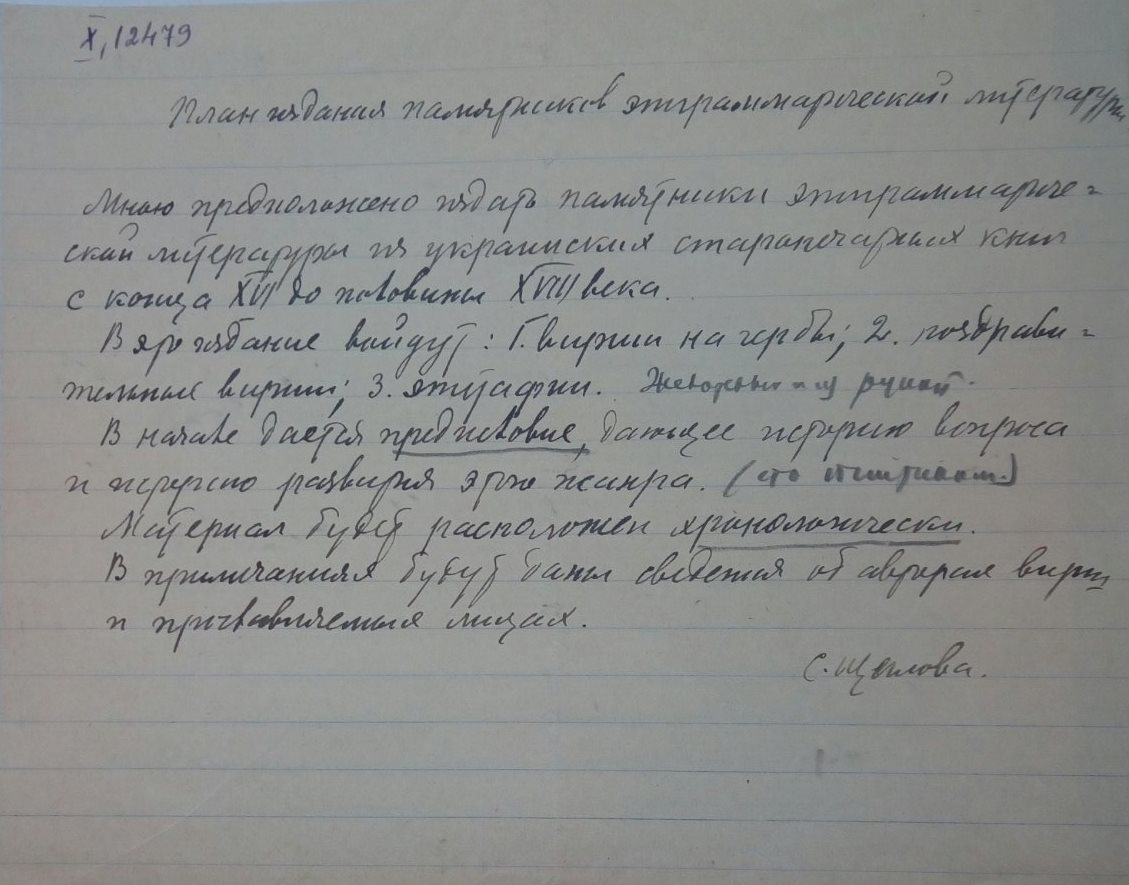 X, 12479
План издания памятников эпиграмматической литературы
Мною предположено издать памятники эпиграмматиче=
ской литературы из украинских старопечатных книг
с конца XVI до половины XVIII века.
В это издание войдут: 1. вирши на гербы; 2. поздрави=
тельные вирши; 3. эпитафии.
В начале дается предисловие, дающее историю вопроса
и историю развития этого жанра.
Материал будет расположен хронологически.
В примечаниях будут даны сведения об авторах вирш
и прославляемых лицах.
С. Щеглова.